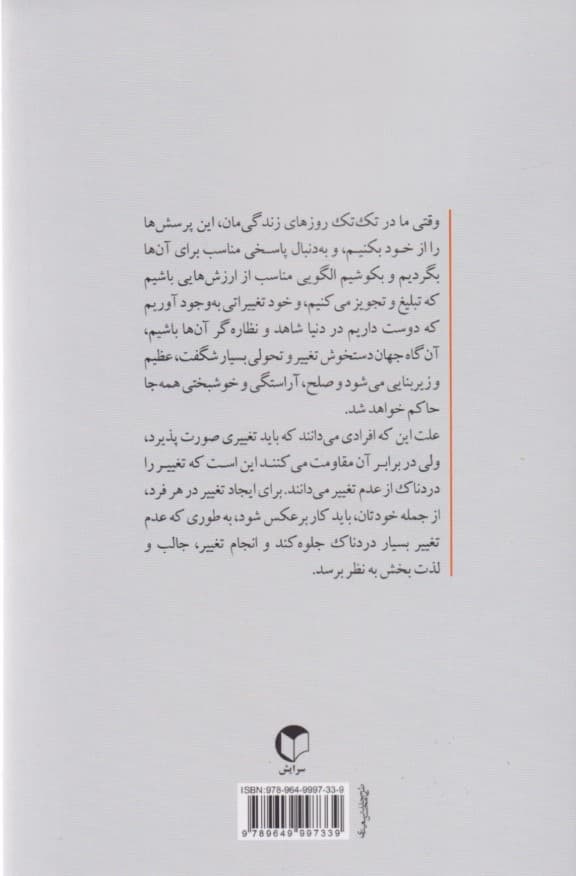 وقتی ما در تک‌تک روزهای زندگی‌مان، این پرسش‌ها
را از خود بکنیم، و به‌دنبال پاسخی مناسب برای آن‌ها
بگردیم و بکوشیم الگویی مناسب از ارزش‌هایی باشیم
که تبلیغ و تجویز می‌کنیم، و خود تغییراتی به‌وجود آوریم
که دوست داریم در دنیا شاهد و نظاره‌گر آن‌ها باشیم،
آن‌گاه جهان دستخوش تغییر و تحولی بسیار شگفت، عظیم
و زیربنایی می‌شود و صلح، آراستگی و خوشبختی همه‌جا
حاکم خواهد شد.
علت این که افرادی می‌دانند که باید تغییری صورت پذیرد،
ولی در برابر آن مقاومت می‌کنند این است که تغییر را
دردناک از عدم تغییر می‌دانند. برای ایجاد تغییر در هر فرد،
از جمله خودتان، باید کار برعکس شود، به طوری که عدم
تغییر بسیار دردناک جلوه کند و انجام تغییر، جالب و
لذت بخش به نظر برسد.
سرایش
ISBN: 978-964-9997-33-9
9 789649 997339